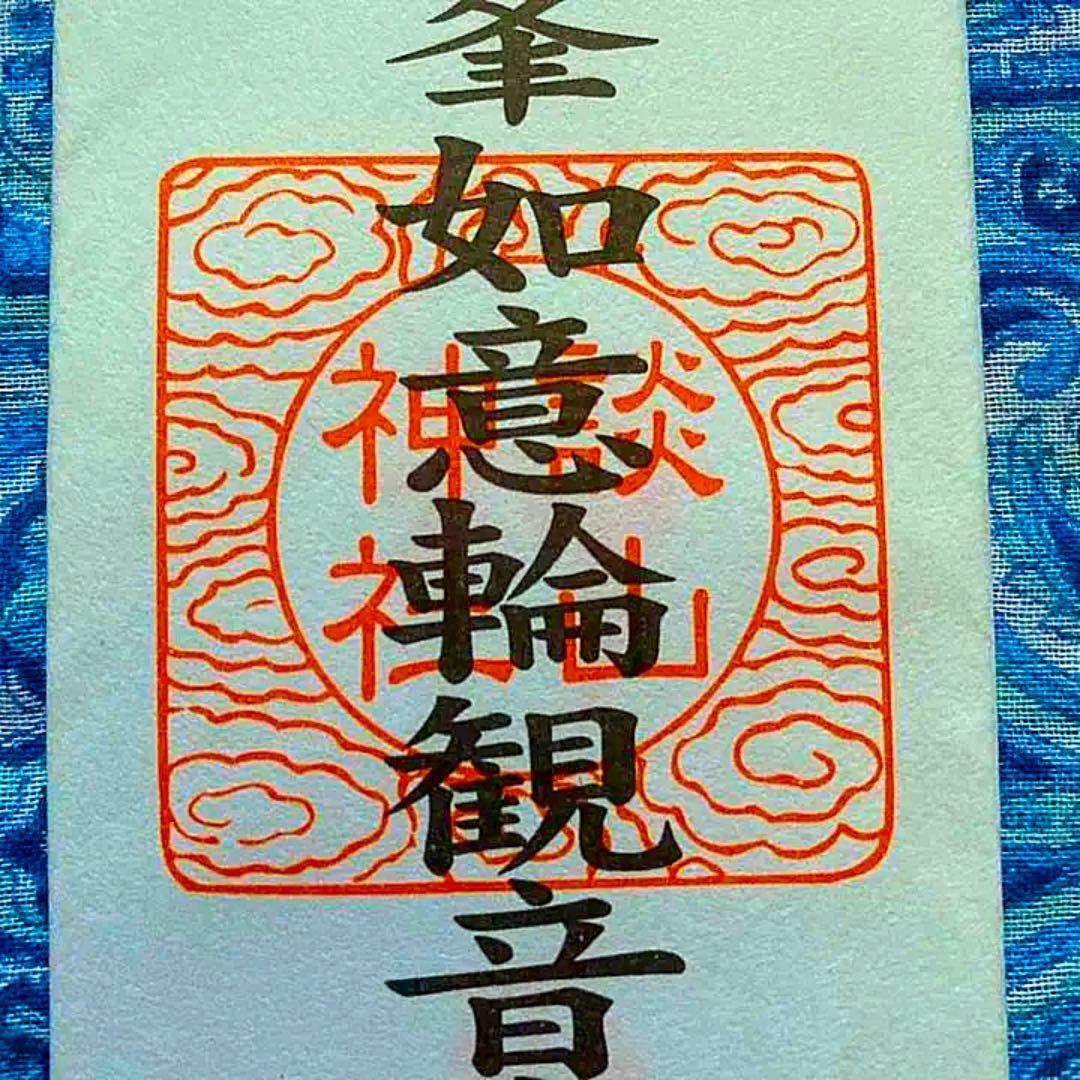 峯如意輪観音
談山
神社